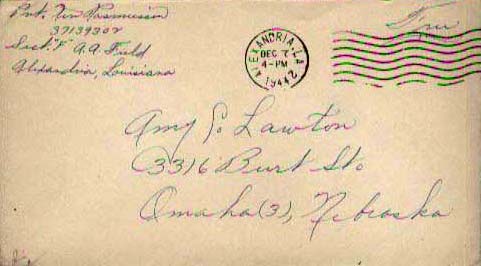 Pvt. Ken Rasmussen
37139302
Sect. F A.A. Field
Alexandria, Louisiana
Free
ALEXANDRIA, LA.
DEC 7
4-PM
1942
Amy P. Lawton
3316 Burt St.
Omaha (3), Nebraska